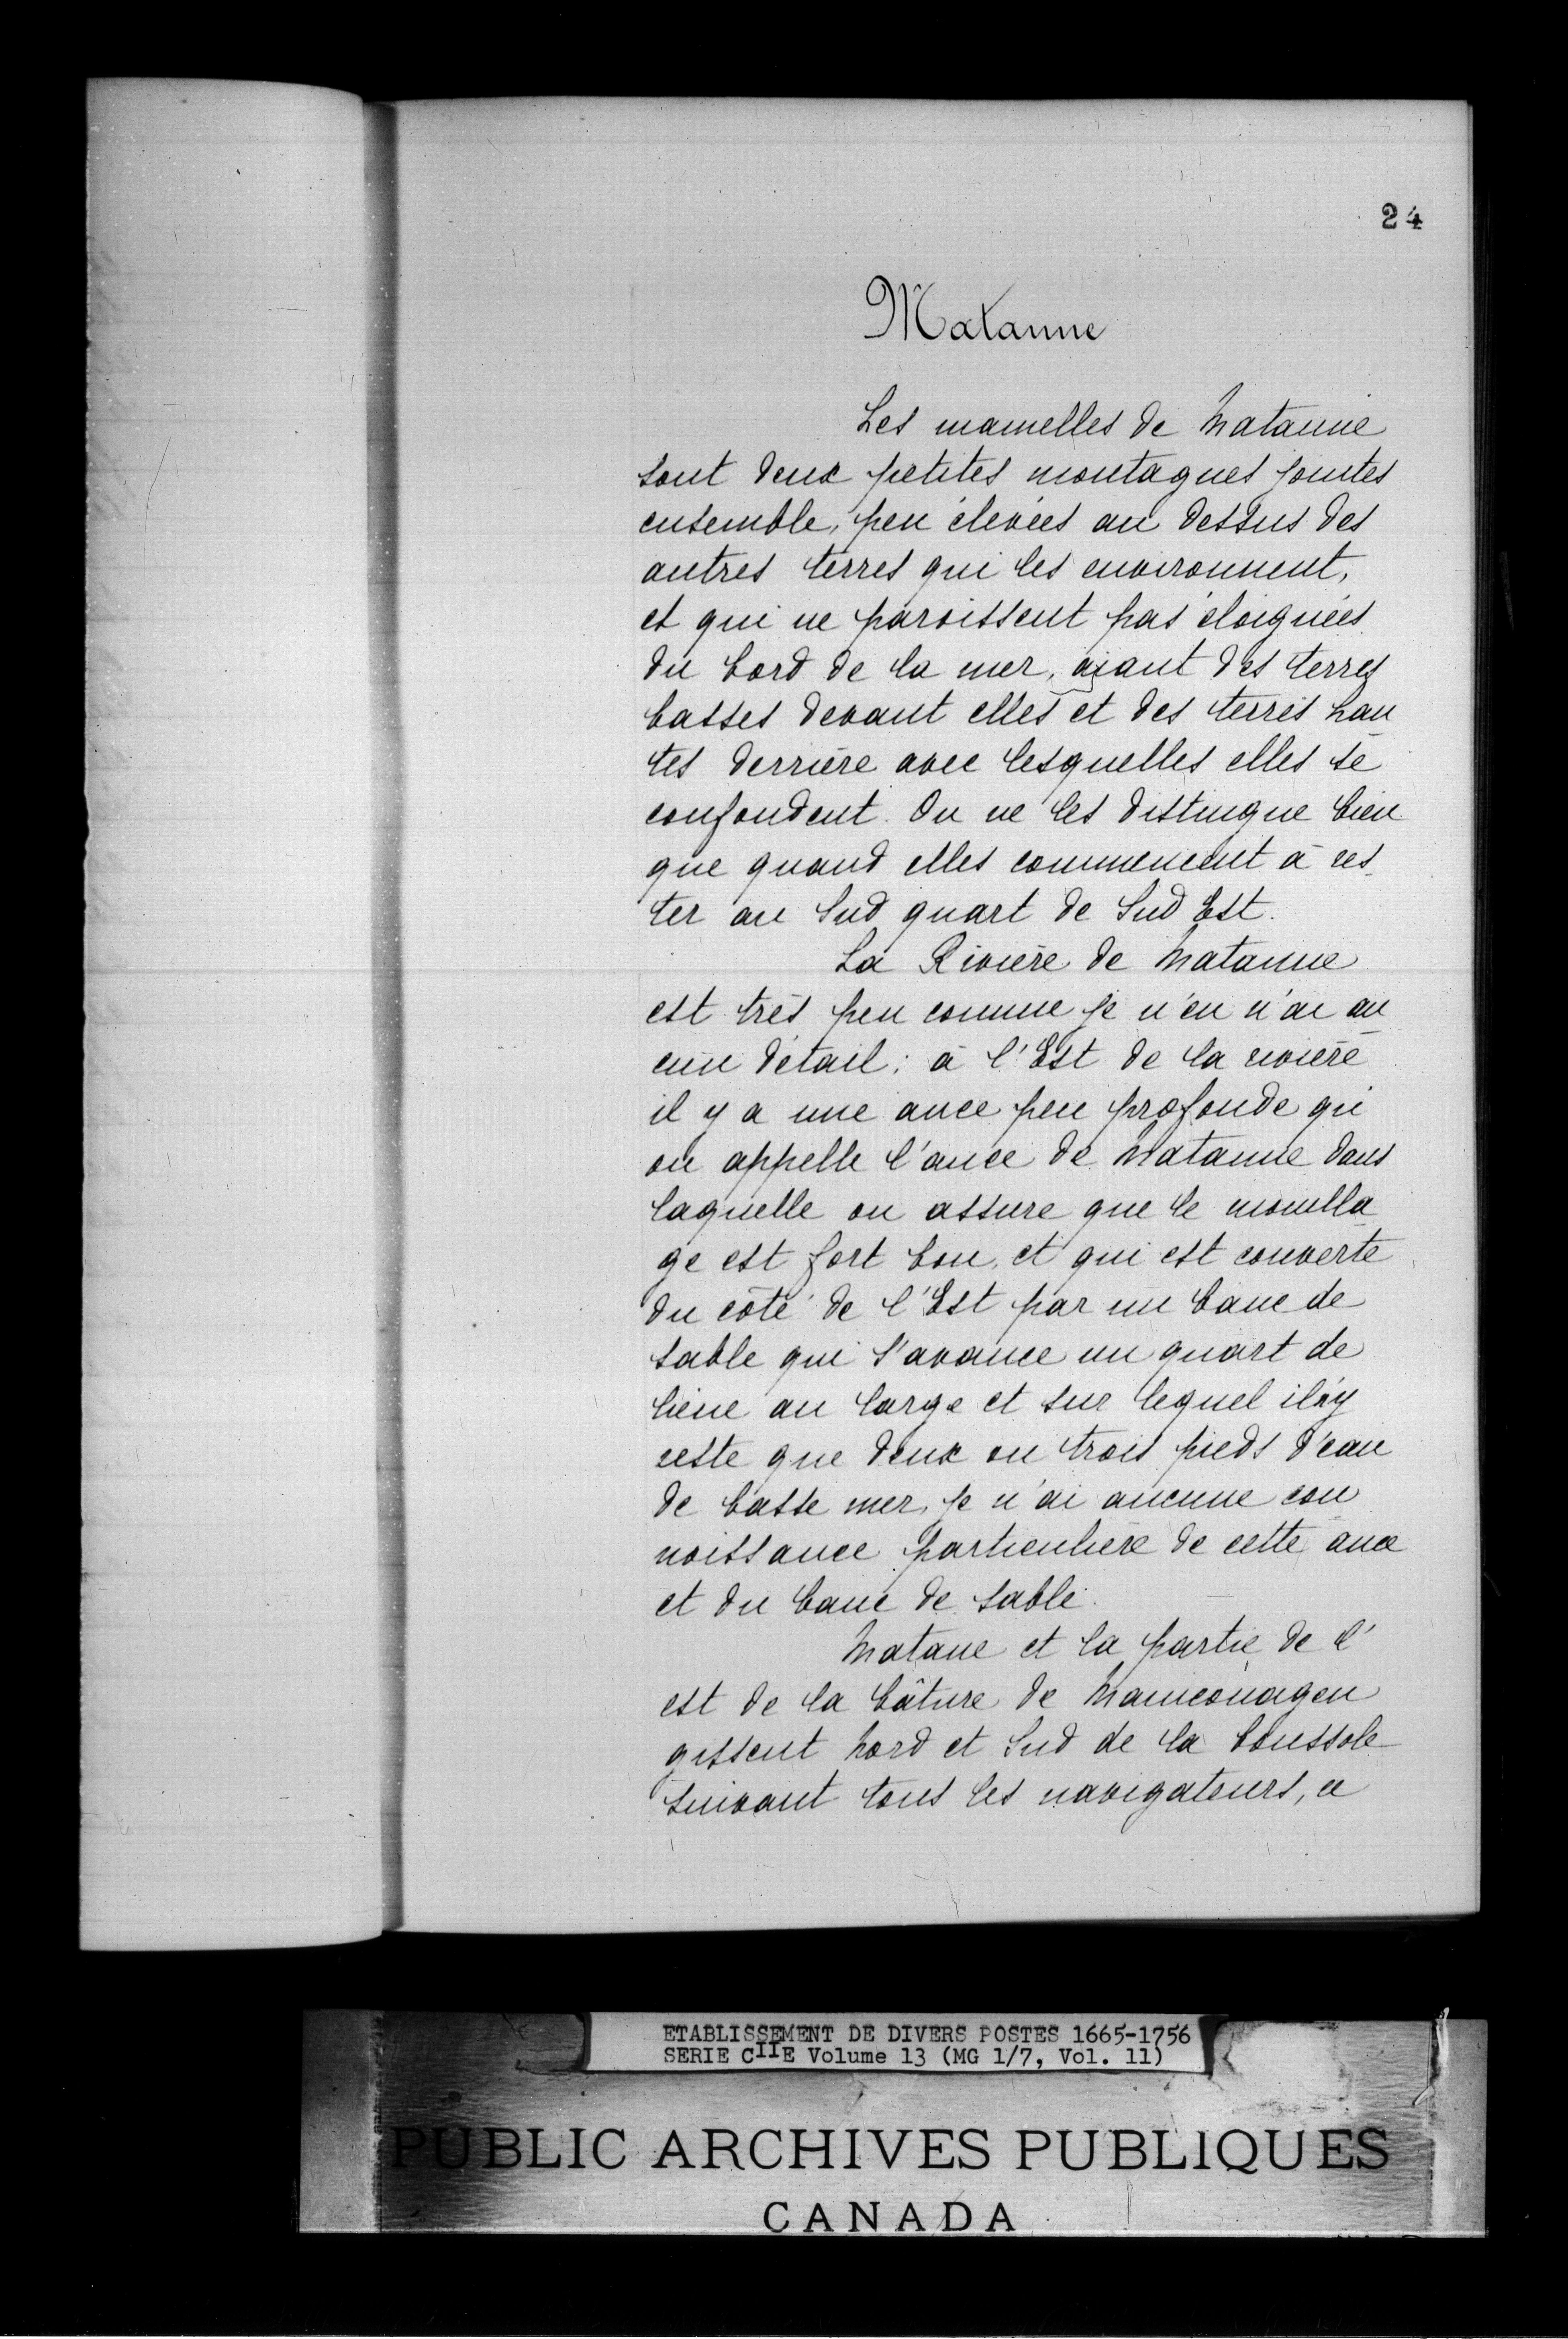 24
Matanne
Les mamelles de Matanne
sont deux petites montagnes jointes
ensemble, peu élevées au dessus des
autres terres qui les environnent,
et qui ne paroissent pas éloignées
du bord de la mer, aiant des terres
basses devant elles et des terres hau
tes derrière avec lesquelles elles se
confondent. On ne les distingue bien
que quand elles commencent à res
ter au Sud quart de Sud Est.
La Rivière de Matanne
est très peu connue je n'en n'ai au
cun détail; à l'Est de la rivière
il y a une ance peu profonde qu'
on appelle l'ance de Matanne dans
laquelle on assure que le mouilla
ge est fort bon, et qui est couverte
du côté de l'Est par un banc de
sable qui s'avance un quart de
lieue au large et sur lequel il n'y
reste que deux ou trois pieds d'eau
de basse mer, je n'ai aucune con
noissance particulière de cette ance
et du banc de sable.
Matane et la partie de l'
est de la bâture de Manicouagen
gissent Nord et Sud de la boussole
suivant tous les navigateurs, ce
ETABLISSEMENT DE DIVERS POSTES 1665-1756
SERIE CIIE Volume 13 (MG 1/7, Vol. 11)
PUBLIC ARCHIVES PUBLIQUES
CANADA